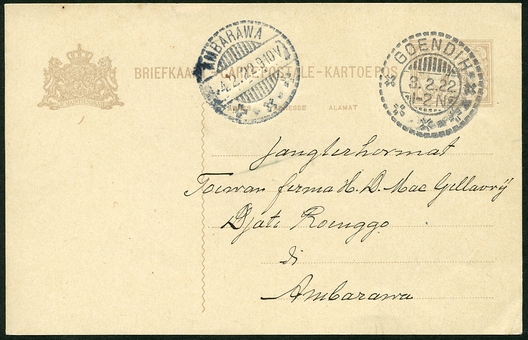 BRIEFKAART CARTE POSTALE-KARTOE POS
AMBARAWA
4.2.22.9-10V
GOENDIH
3.2.22
1-2 N
ADRESSE ALAMAT
Jangterhormat
Toewan firma H. D. Mac Gillavrij
Djati Roenggo
di
Ambarawa